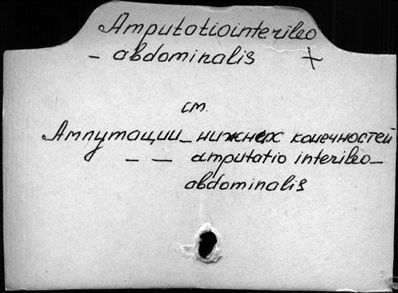 Amputatiointerileo
– abdominalis +
см.
Ампутации – нижних конечностей
– – amputatio interileo–
abdominalis